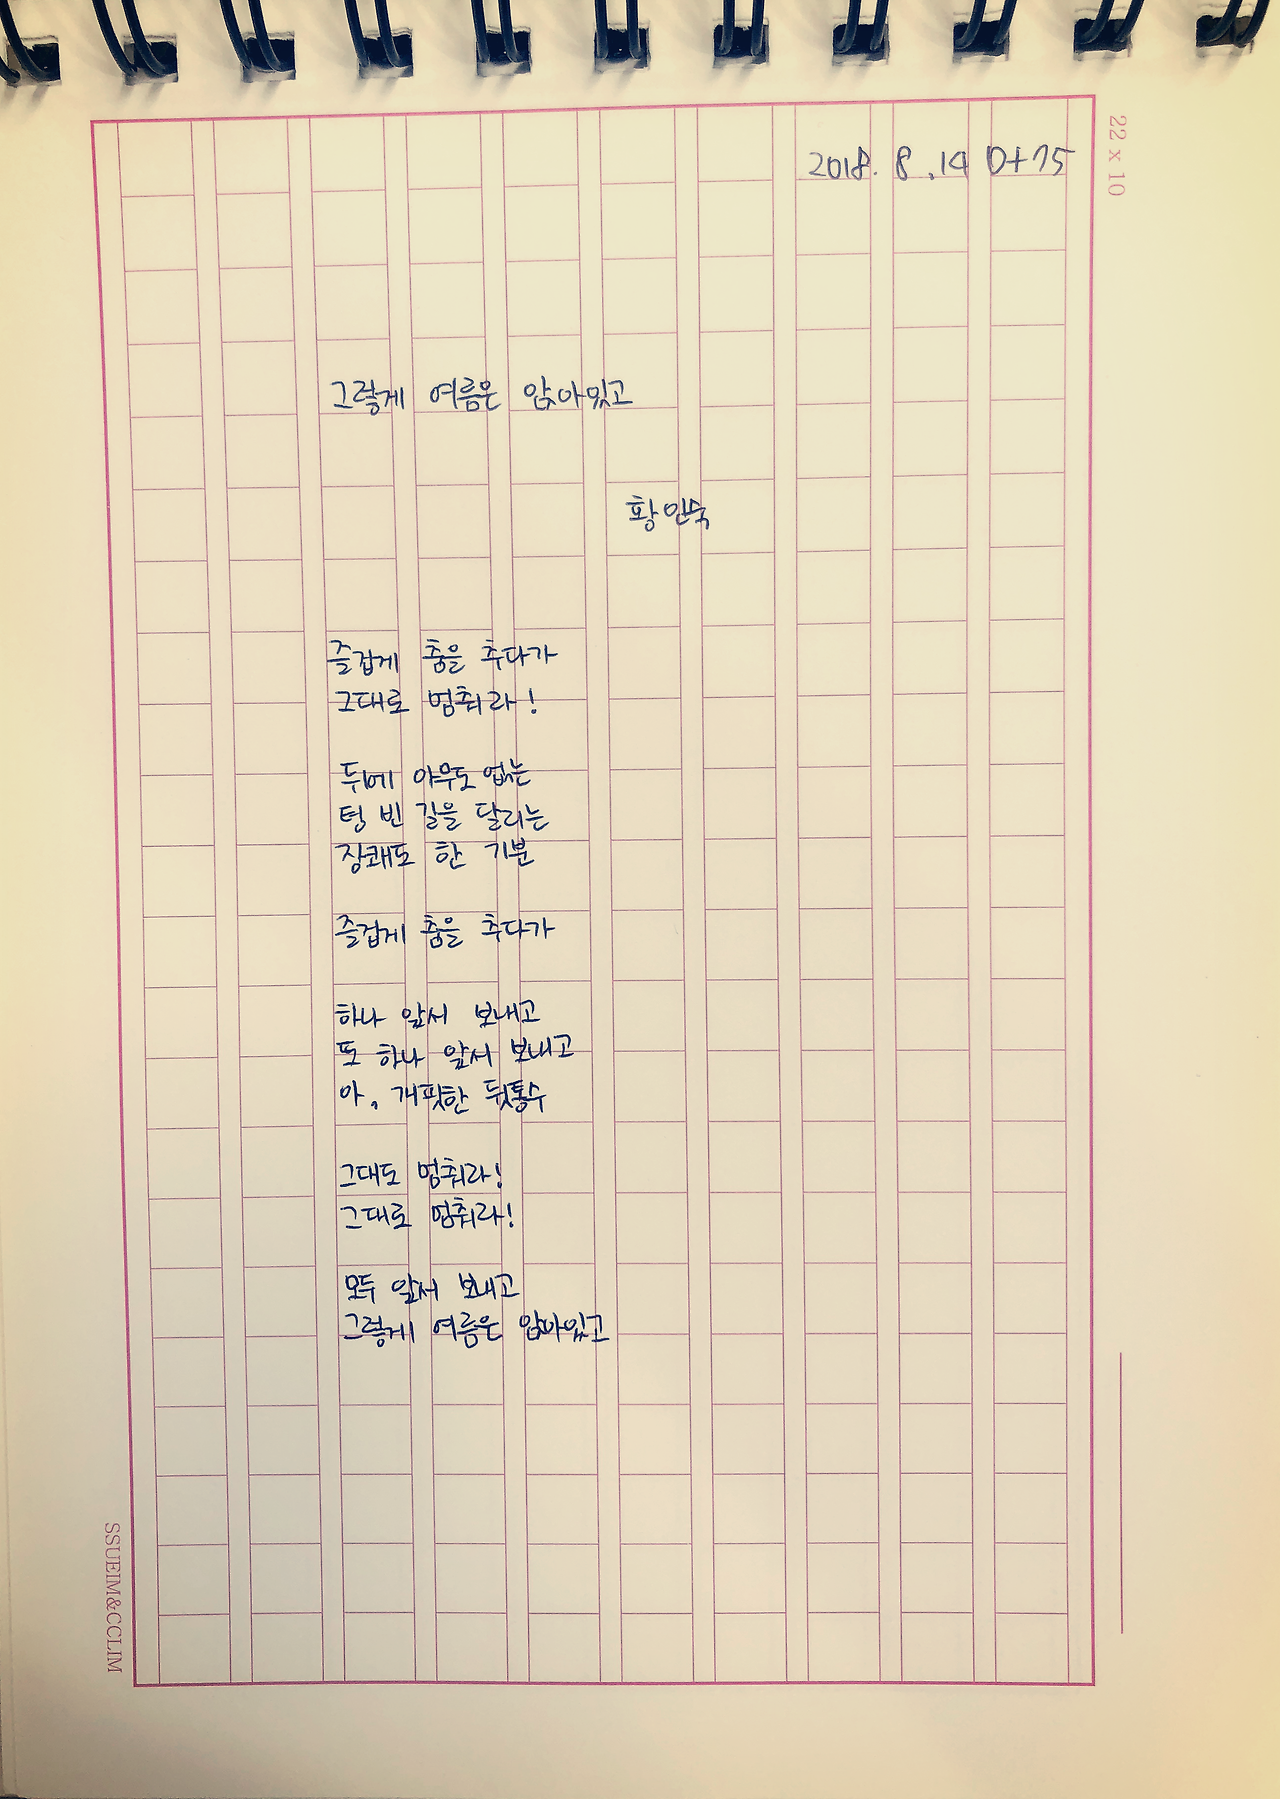 22 x 10
2018. 8. 14 D+75
그렇게 여름은 앉아있고
황인숙
즐겁게 춤을 추다가
그대로 멈춰라!
뒤에 아무도 없는
텅 빈 길을 달리는
장쾌도 한 기분
즐겁게 춤을 추다가
하나 앞서 보내고
또 하나 앞서 보내고
아, 개핏한 뒷통수
그대도 멈춰라!
그대로 멈춰라!
모두 앞서 보내고
그렇게 여름은 앉아있고
SSUEIM&CCLIM